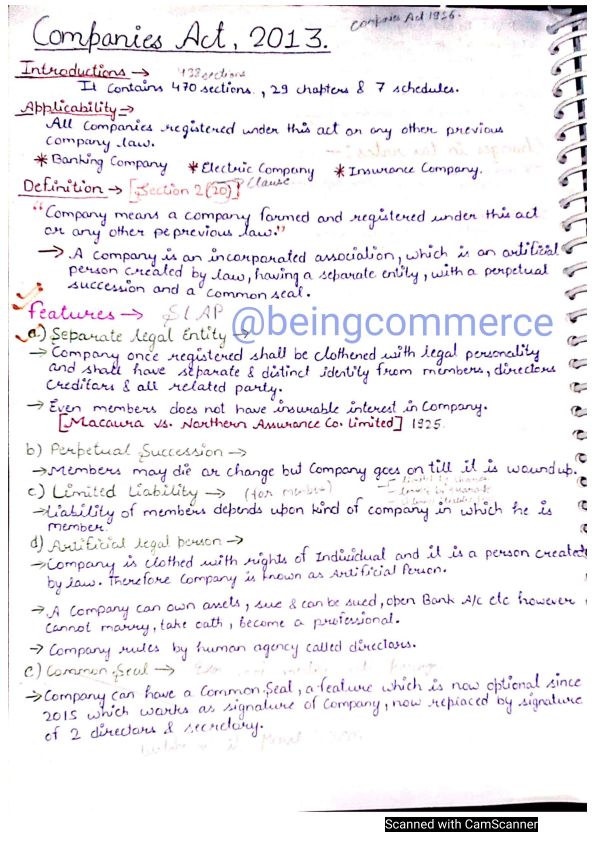 Companies Act 1956.
Companies Act, 2013.
Introductions →
438 sections
It Contains 470 sections, 29 chapters & 7 schedules.
Applicability →
All Companies registered under this act or any other previous
Company law.
* Banking Company * Electric Company * Insurance Company.
Definition → [Section 2(20)] Clause
"Company means a company formed and registered under this act
or any other pe previous law."
→ A Company is an incorporated association, which is an artificial
person created by law, having a separate entity, with a perpetual
succession and a common seal.
features → SLAP
@beingcommerce
a.) Separate legal Entity →
→ Company once registered shall be clothened with legal personality
and shall have separate & distinct identity from members, directors
Creditors & all related party.
→ Even members does not have insurable interest in Company.
[Macaura vs. Northern Assurance Co. Limited] 1925.
b) Perpetual Succession →
→ Members may die or change but Company goes on till it is woundup.
c.) Limited Liability → (for member)
→ Liability of members depends upon kind of company in which he is
member.
d) Artificial legal person →
→ Company is clothed with rights of Individual and it is a person created
by law. therefore Company is known as Artificial Person.
→ A Company can own assets, sue & can be sued, open Bank A/c etc however
cannot marry, take oath, become a professional.
→ Company rules by human agency called directors.
e.) Common Seal →
→ Company can have a Common Seal, a feature which is now optional since
2015 which works as signature of Company, now replaced by signature
of 2 directors & secretary.
Scanned with CamScanner